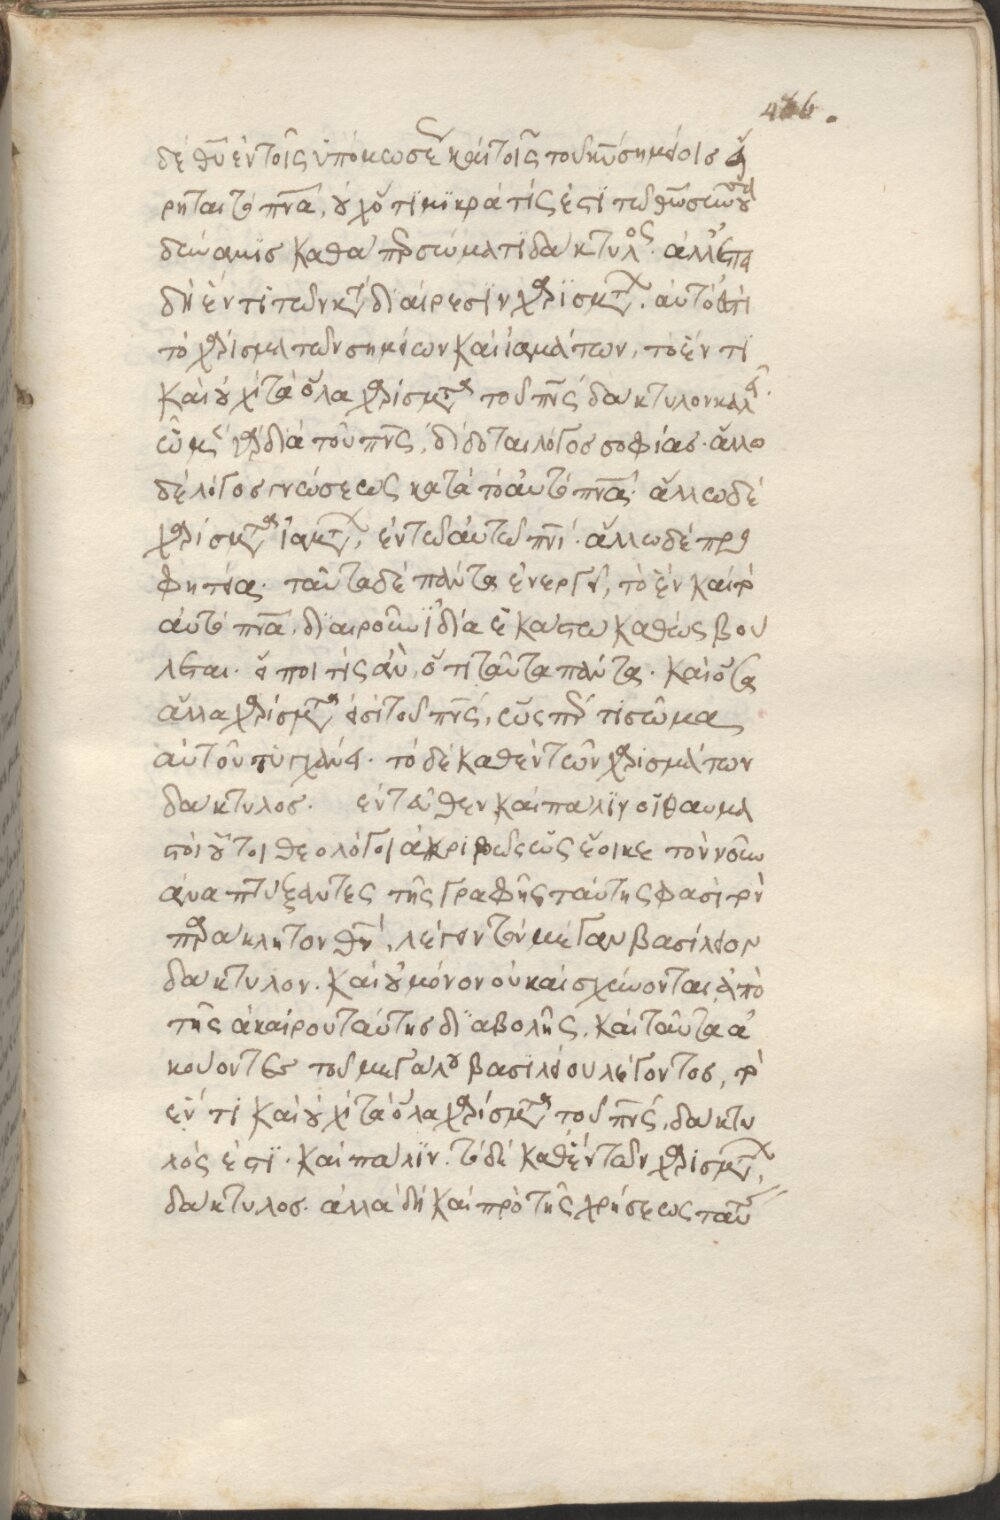 466.
δὲ θῦ ἐν τοῖς ὑπὸ μωσέ καὶ τοῖς τοῦ κῦ σημείοις
ρηται τὸ πνα, οὐχ ὅτι μικρά τίς ἐστι τῶ θῶ
δύναμις καθάπερ σώματι δάκτυλος. ἀλλ' ἐπει
δὴ ἕν τι τῶν κτ διαίρεσιν χαρισμτ. αὐτὸ ἐστὶ
τὸ χάρισμα τῶν σημείων καὶ ἰαμάτων, τὸ ἕν τι
καὶ οὐχὶ τὰ ὅλα χαρίσμτα τοῦ πνς δάκτυλον καλ
ὧ μὲν γὰρ διὰ τοῦ πνς, δίδοται λόγος σοφίας. ἄλλω
δὲ λόγος γνώσεως κατὰ τὸ αὐτὸ πνα. ἄλλω δὲ
χαρίσμτα ἰαμτ, ἐν τῶ αὐτῶ πνι. ἄλλω δὲ προ
φητεία. ταῦτα δὲ πάντα ἐνεργεῖ, τὸ ἓν καὶ τὸ
αὐτὸ πνα, διαιροῦν ἰδία ἑκάστω καθὼς βού
λεται. εἴποι τίς ἂν, ὅτι ταῦτα πάντα. καὶ ὅσα
ἄλλα χαρίσμτα ἐστὶ τοῦ πνς, ὡσπερ τι σῶμα
αὐτοῦ τυγχάνει. τὸ δὲ καθ' ἓν τῶν χαρισμάτων
δάκτυλος. ἐντεῦθεν καὶ πάλιν οἱ θαυμα
στοὶ οὗτοι θεολόγοι ἀκριβῶς ὡς ἔοικε τὸν νοῦν
ἀναπτύξαντες τῆς γραφῆς ταύτης φασὶ τὸν
παράκλητον θν, λέγειν τὸν μέγαν βασίλειον
δάκτυλον. καὶ οὐ μόνον οὐκ αἰσχύνονται ἀπὸ
τῆς ἀκαίρου ταύτης διαβολῆς, καὶ ταῦτα ἀ
κούοντες τοῦ μεγάλου βασιλείου λέγοντος, τὸ
ἕν τι καὶ οὐχὶ τὰ ὅλα χαρίσμτα τοῦ πνς, δάκτυ
λός ἐστι. καὶ πάλιν. τὸ δὲ καθ' ἓν τῶν χαρισμτ,
δάκτυλος. ἀλλὰ δὴ καὶ πρὸ τῆς χρήσεως ταύ